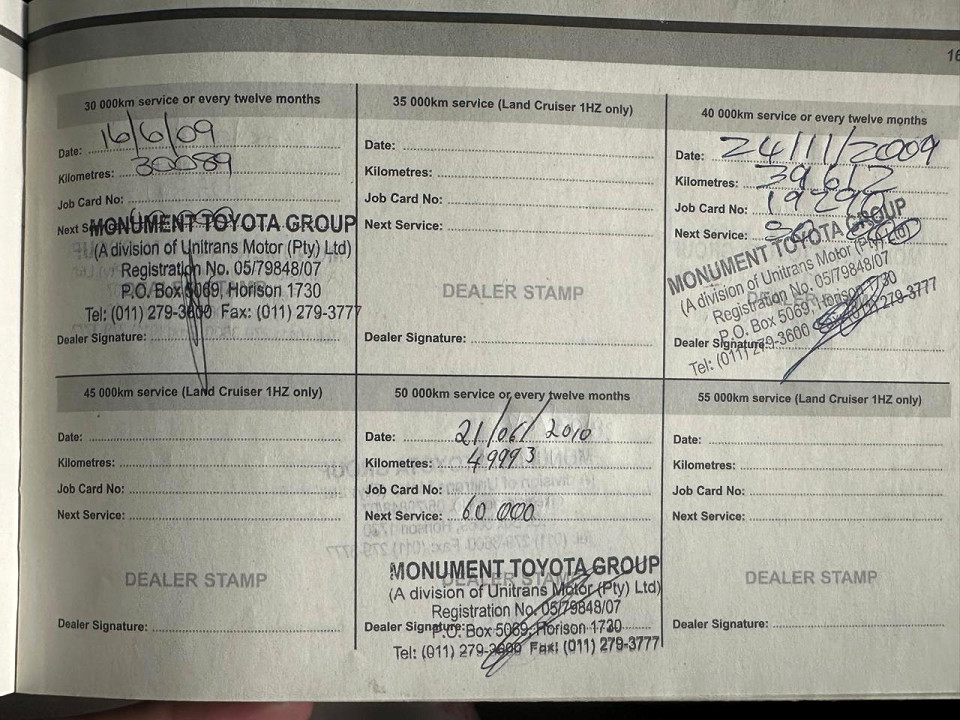 16
30 000km service or every twelve months
Date: 16/6/09
Kilometres: 30089
Job Card No:
Next
MONUMENT TOYOTA GROUP
(A division of Unitrans Motor (Pty) Ltd)
Registration No. 05/79848/07
P.O. Box 5069, Horison 1730
Tel: (011) 279-3600 Fax: (011) 279-3777
Dealer Signature:
35 000km service (Land Cruiser 1HZ only)
Date:
Kilometres:
Job Card No:
Next Service:
DEALER STAMP
Dealer Signature:
40 000km service or every twelve months
Date: 24/11/2009
Kilometres: 39612
Job Card No:
Next Service:
MONUMENT TOYOTA GROUP
(A division of Unitrans Motor (Pty) Ltd)
Registration No. 05/79848/07
P.O. Box 5069, Horison 1730
Tel: (011) 279-3600 Fax: (011) 279-3777
Dealer Signature:
45 000km service (Land Cruiser 1HZ only)
Date:
Kilometres:
Job Card No:
Next Service:
DEALER STAMP
Dealer Signature:
50 000km service or every twelve months
Date: 21/06/2010
Kilometres: 49993
Job Card No:
Next Service: 60 000
DEALER STAMP
MONUMENT TOYOTA GROUP
(A division of Unitrans Motor (Pty) Ltd)
Registration No. 05/79848/07
Dealer Signature:
P.O. Box 5069, Horison 1730
Tel: (011) 279-3600 Fax: (011) 279-3777
55 000km service (Land Cruiser 1HZ only)
Date:
Kilometres:
Job Card No:
Next Service:
DEALER STAMP
Dealer Signature: